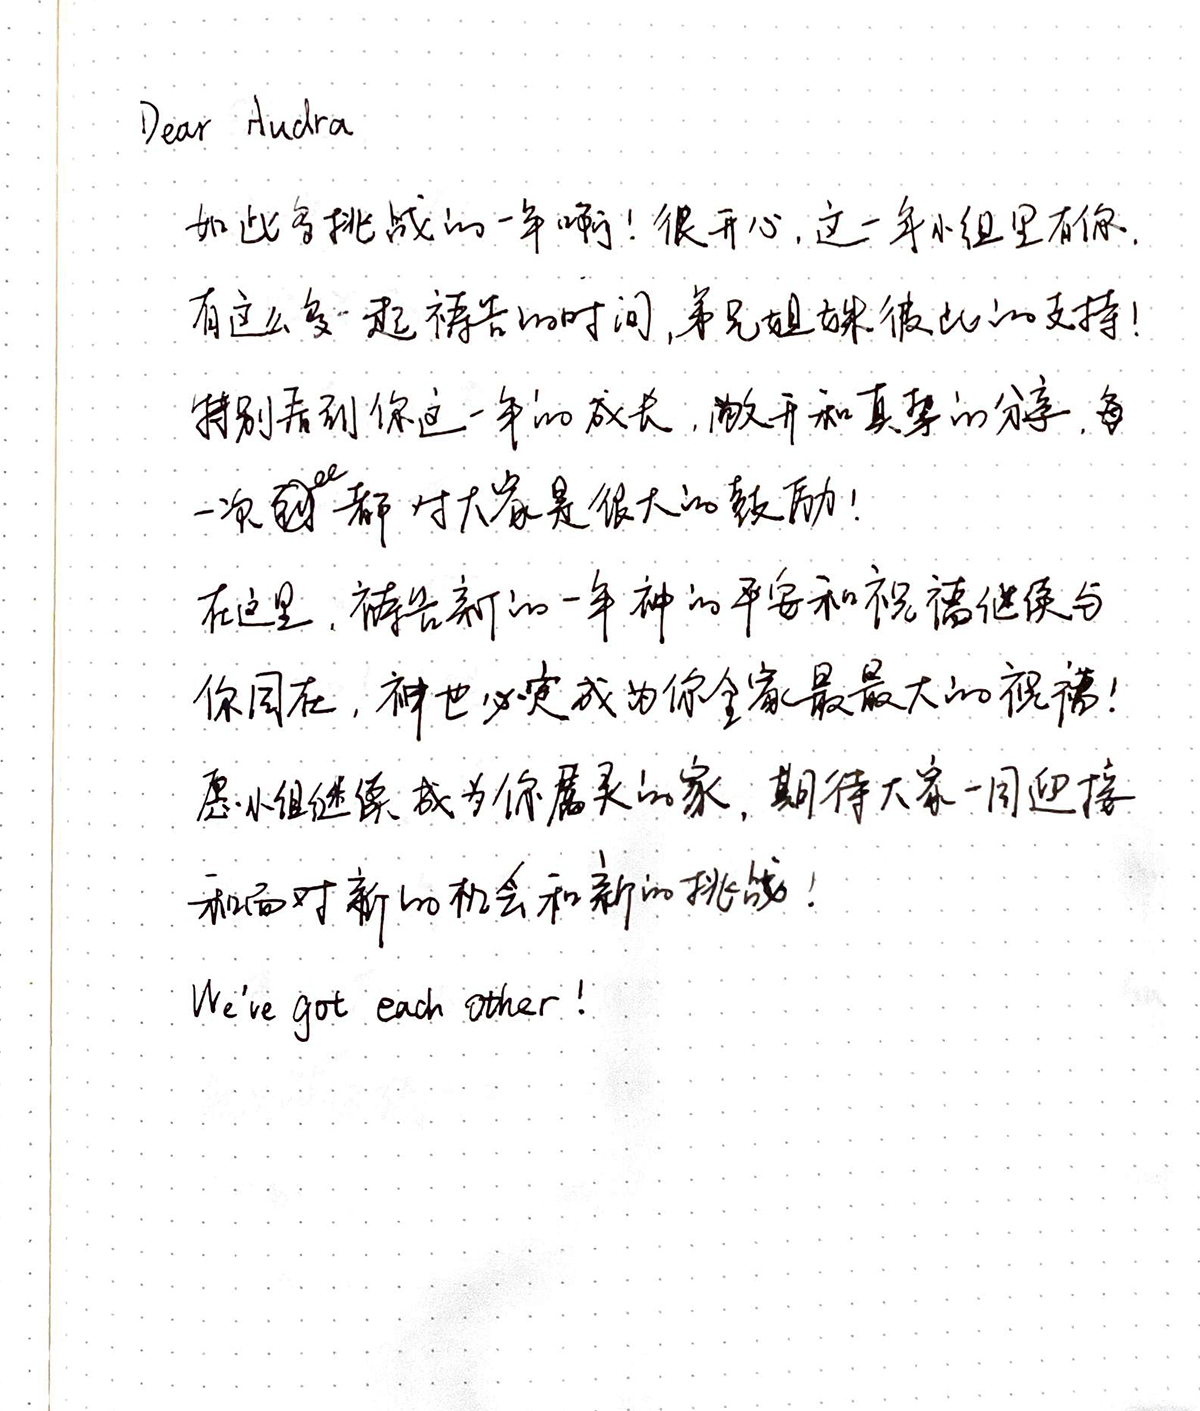 Dear Audra
如此多挑战的一年啊！很开心，这一年小组里有你，
有这么多一起祷告的时间，弟兄姐妹彼此的支持！
特别看到你这一年的成长，敞开和真挚的分享，每
一次都对大家是很大的鼓励！
在这里，祷告新的一年神的平安和祝福继续与
你同在，神也必定成为你全家最最大的祝福！
愿小组继续成为你属灵的家，期待大家一同迎接
和面对新的机会和新的挑战！
We've got each other!